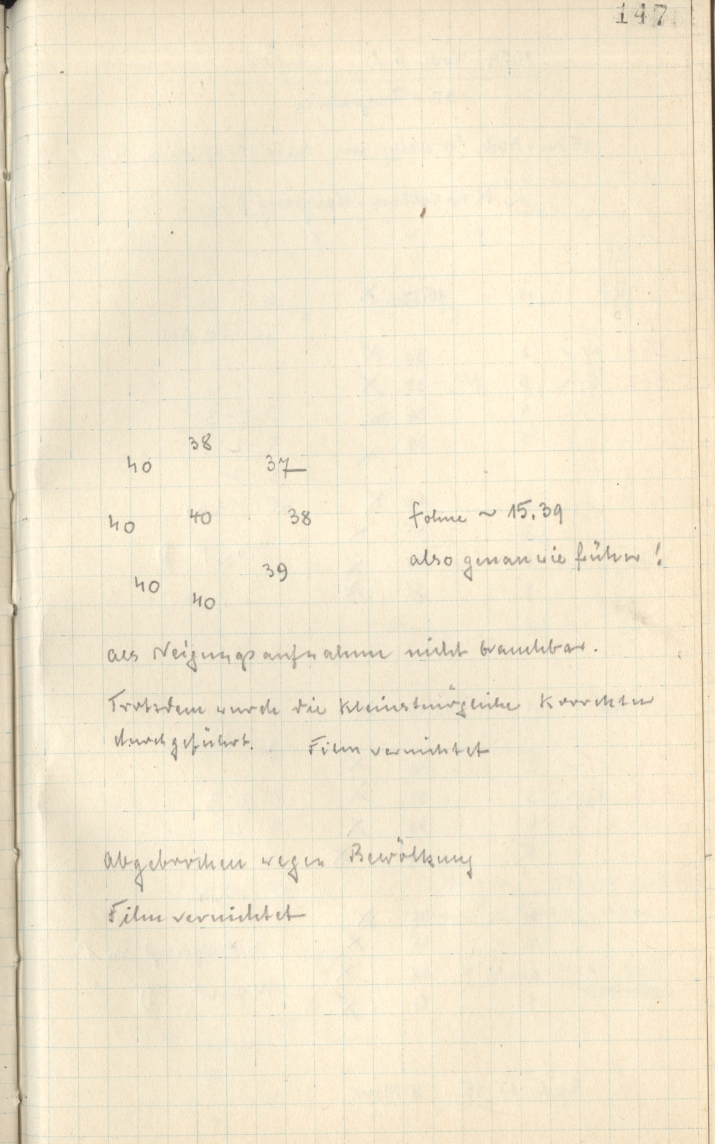 147
38
40 37
40 40 38 ~ 15.39
also genau wie früher !
39
40
40
als Neigungsaufnahme nicht brauchbar.
Trotzdem wurde die kleinstmögliche Korrektur
durchgeführt. Film vernichtet
abgebrochen wegen Bewölkung
Film vernichtet